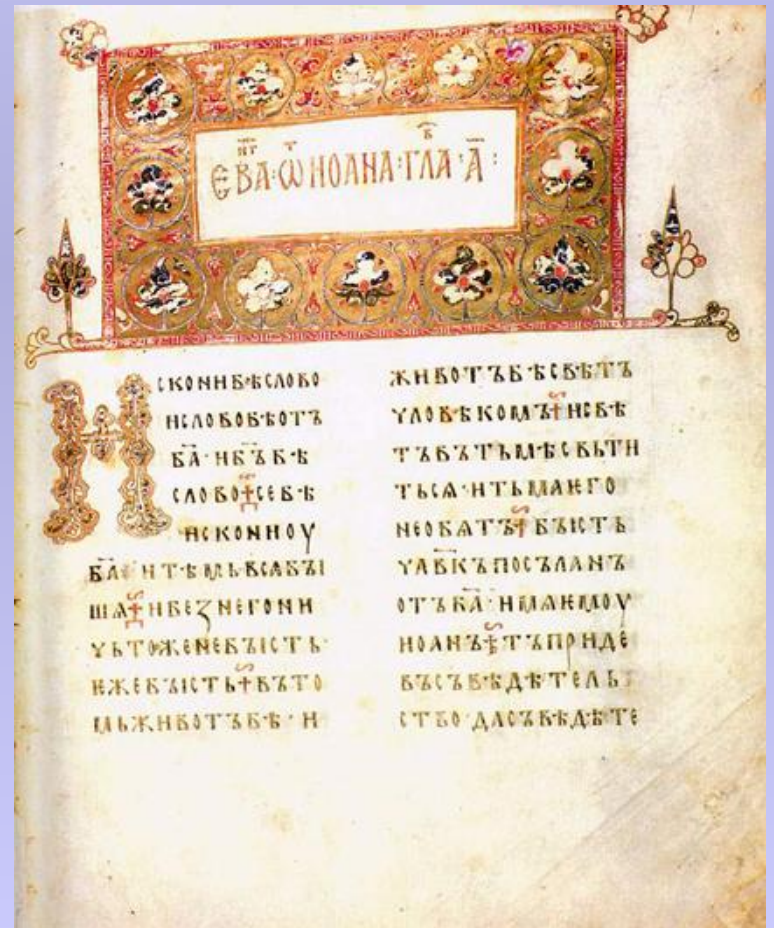 ЕВА҃НГ · Ѿ ИОАНА · ГЛА҃В · А҃ :
ИСКОНИБѢСЛОВО
ИСЛОВОБѢОТЪ
Б҃А · И Б҃ЪБѢ
СЛОВО СЕБѢ
ИСКОНИОУ
Б҃А · И ТѢМЬВСѦБЪІ
ШѦ ИБЕЗНЕГОНИ
ЧЬТОЖЕНЕБЪІСТЬ ·
ЕЖЕБЪІСТЬ ВЪТО
МЬЖИВОТЪБѢ · И
ЖИВОТЪБѢСВѢТЪ
ЧЛОВѢКОМЪ ИСВѢ
ТЪВЪТЬМѢСВЬТИ
ТЬСѦ · ИТЬМАѤГО
НЕОБѦТЪ БЪІСТЬ
ЧЛ҃ВКЪПОСЪЛАНЪ
ОТЪБ҃А · ИМѦѤМОУ
ИОАНЪ ТЪПРИДЕ
ВЪСЪВѢДѢТЕЛЬ
СТВО · ДАСЪВѢДѢТЕ